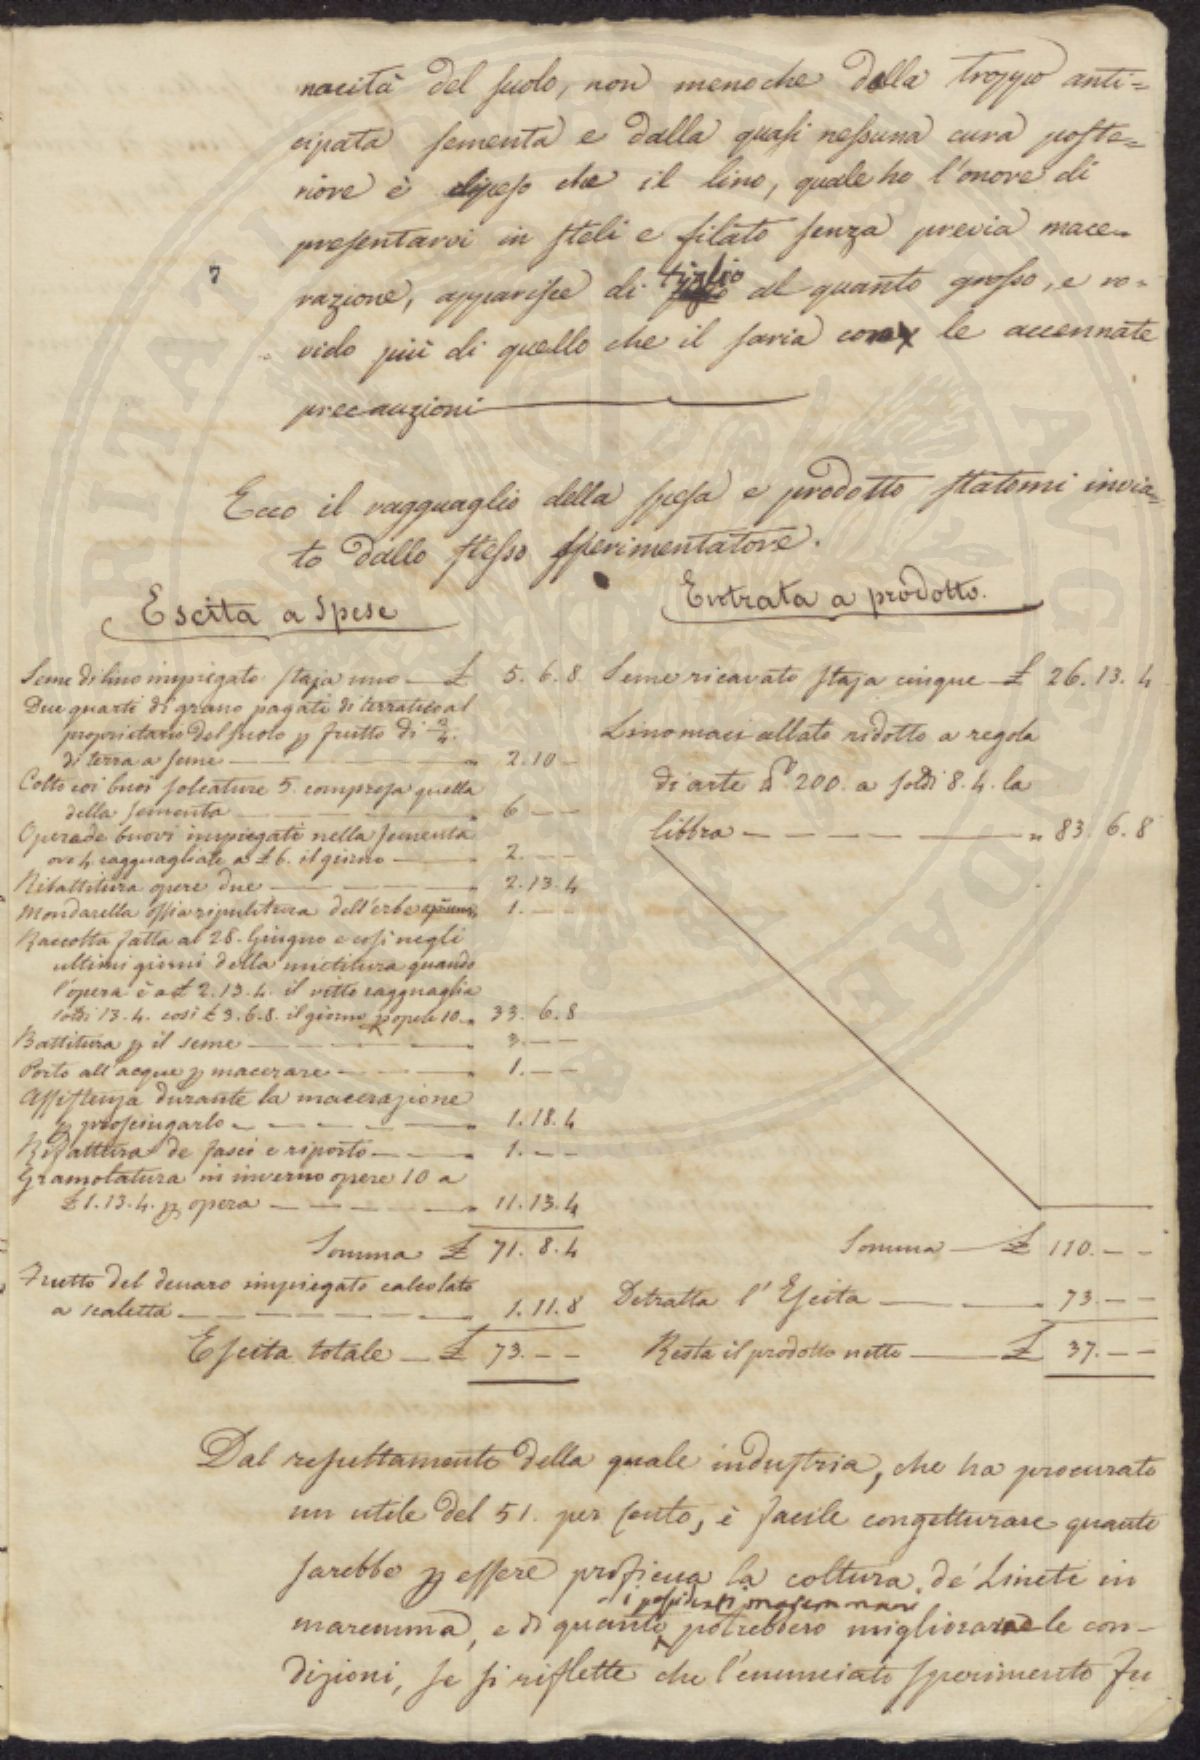 nacità del suolo, non menoche dalla troppo anti=
cipata sementa e dalla quasi nessuna cura poste=
riore è dipeso che il lino, quale ho l'onore di
presentarvi in steli e filato senza previa mace-
7
razione, apparisce di tiglio al quanto grosso, e ro-
vido più di quello che il saria con le accennate
precauzioni
Ecco il ragguaglio della spesa e prodotto statomi invia-
to dallo stesso sperimentatore.
Escita a Spese
Seme di lino impiegato staja uno — £ 5. 6. 8
Due quarti di grano pagati di terratico al
proprietario del suolo p frutto di 3/4.
di terra a seme — 2. 10 —
Colto coi buoi solcature 5. compresa quella
della sementa — 6 — —
Opera de buovi impiegati nella sementa
ore 4 ragguagliate a £ 6. il giorno — 2. — —
Ribattitura opere due — 2. 13. 4
Mondarella ossia ripulitura dell'erbe — 1. — —
Raccolta fatta al 28. Giugno e così negli
ultimi giorni della mietitura quando
l'opera è a £ 2. 13. 4. il vitto ragguaglia
soldi 13. 4. così £ 3. 6. 8. il giorno p opere 10 „ 33. 6. 8
Battitura p il seme — 3. — —
Porto all'acque p macerare — 1. — —
Assistenza durante la macerazione
p prosciugarlo — 1. 18. 4
Rifattura de fasci e riporto — 1. — —
Gramolatura in inverno opere 10 a
£ 1. 13. 4. p opera — 11. 13. 4
Somma £ 71. 8. 4
Frutto del denaro impiegato calcolato
a scaletta — 1. 11. 8
Escita totale — £ 73. — —
Entrata a prodotto.
Seme ricavato staja cinque £ 26. 13. 4
Lino maciullato ridotto a regola
di arte lb 200. a soldi 8. 4. la
libbra — „ 83. 6. 8
Somma — £ 110. — —
Detratta l'Escita — 73. — —
Resta il prodotto netto — £ 37. — —
Dal resultamento della quale industria, che ha procurato
un utile del 51. per cento, è facile congetturare quanto
sarebbe p essere proficua la coltura de' Lineti in
i possidenti maremmani
maremma, e di quanto potrebbero migliorarne le con-
dizioni, se si riflette che l'enunciato sperimento fu